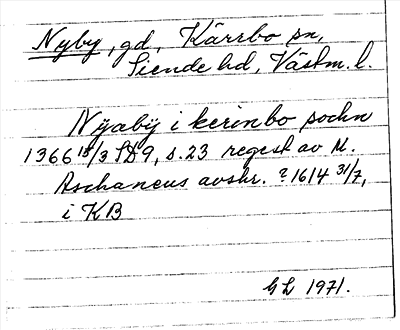 Nyby, gd, Kärrbo sn,
Siende hd, Västm. l.
Nÿabÿ i kerinbo sochn
1366 18/3 SD 9, s. 23 regest av M.
Aschaneus avskr. ? 1614 31/7,
i KB
GL 1971.